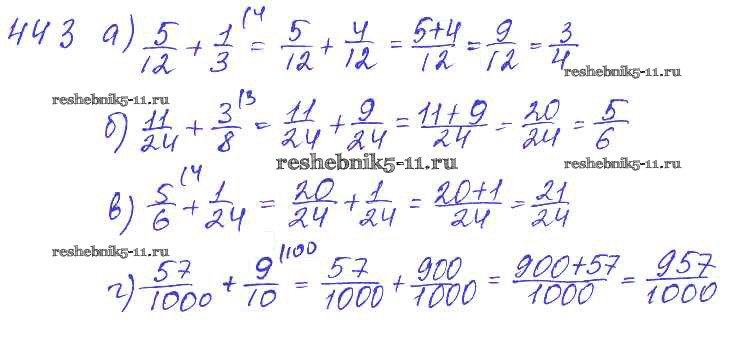 443 а) 5/12 + 1/3 (4 = 5/12 + 4/12 = 5+4/12 = 9/12 = 3/4
reshebnik5-11.ru
reshebnik5-11.ru
б) 11/24 + 3/8 (3 = 11/24 + 9/24 = 11+9/24 = 20/24 = 5/6
reshebnik5-11.ru
reshebnik5-11.ru
в) 5/6 (4 + 1/24 = 20/24 + 1/24 = 20+1/24 = 21/24
reshebnik5-11.ru
г) 57/1000 + 9/10 (100 = 57/1000 + 900/1000 = 900+57/1000 = 957/1000